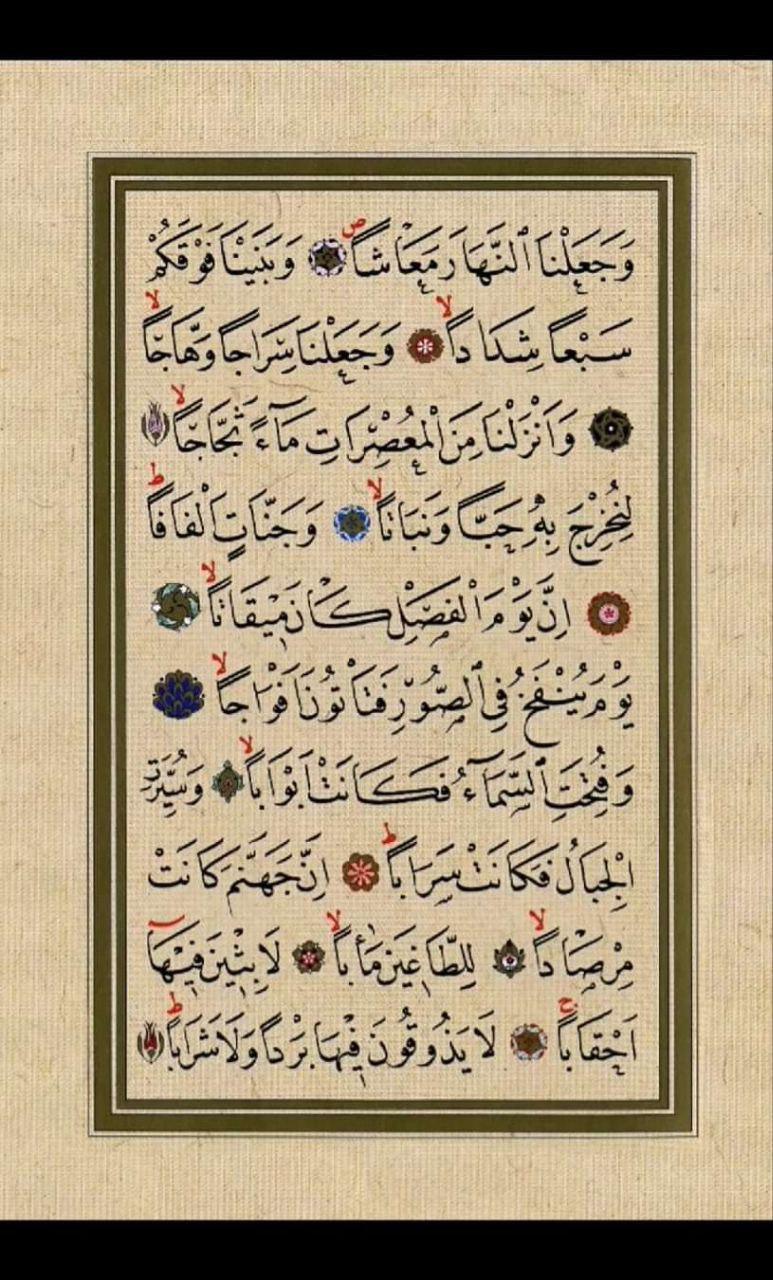 وَجَعَلْنَا ٱلنَّهَارَ مَعَاشاًۖ وَبَنَيْنَا فَوْقَكُمْ
سَبْعاً شِدَاداًۙ وَجَعَلْنَا سِرَاجاً وَهَّاجاًۙ
وَاَنْزَلْنَا مِنَ الْمُعْصِرَاتِ مَٓاءً ثَجَّاجاًۙ
لِنُخْرِجَ بِه۪ حَباًّ وَنَبَاتاًۙ وَجَنَّاتٍ اَلْفَافاًۜ
اِنَّ يَوْمَ الْفَصْلِ كَانَ م۪يقَاتاًۙ
يَوْمَ يُنْفَخُ فِي ٱلصُّورِ فَتَأْتُونَ اَفْوَاجاًۙ
وَفُتِحَتِ ٱلسَّمَٓاءُ فَكَانَتْ اَبْوَاباًۙ وَسُيِّرَتِ
الْجِبَالُ فَكَانَتْ سَرَاباًۜ اِنَّ جَهَنَّمَ كَانَتْ
مِرْصَاداًۙ لِلطَّاغ۪ينَ مَاٰباًۙ لَابِث۪ينَ ف۪يهَٓا
اَحْقَاباًۚ لَا يَذُوقُونَ ف۪يهَا بَرْداً وَلَا شَرَاباًۜ